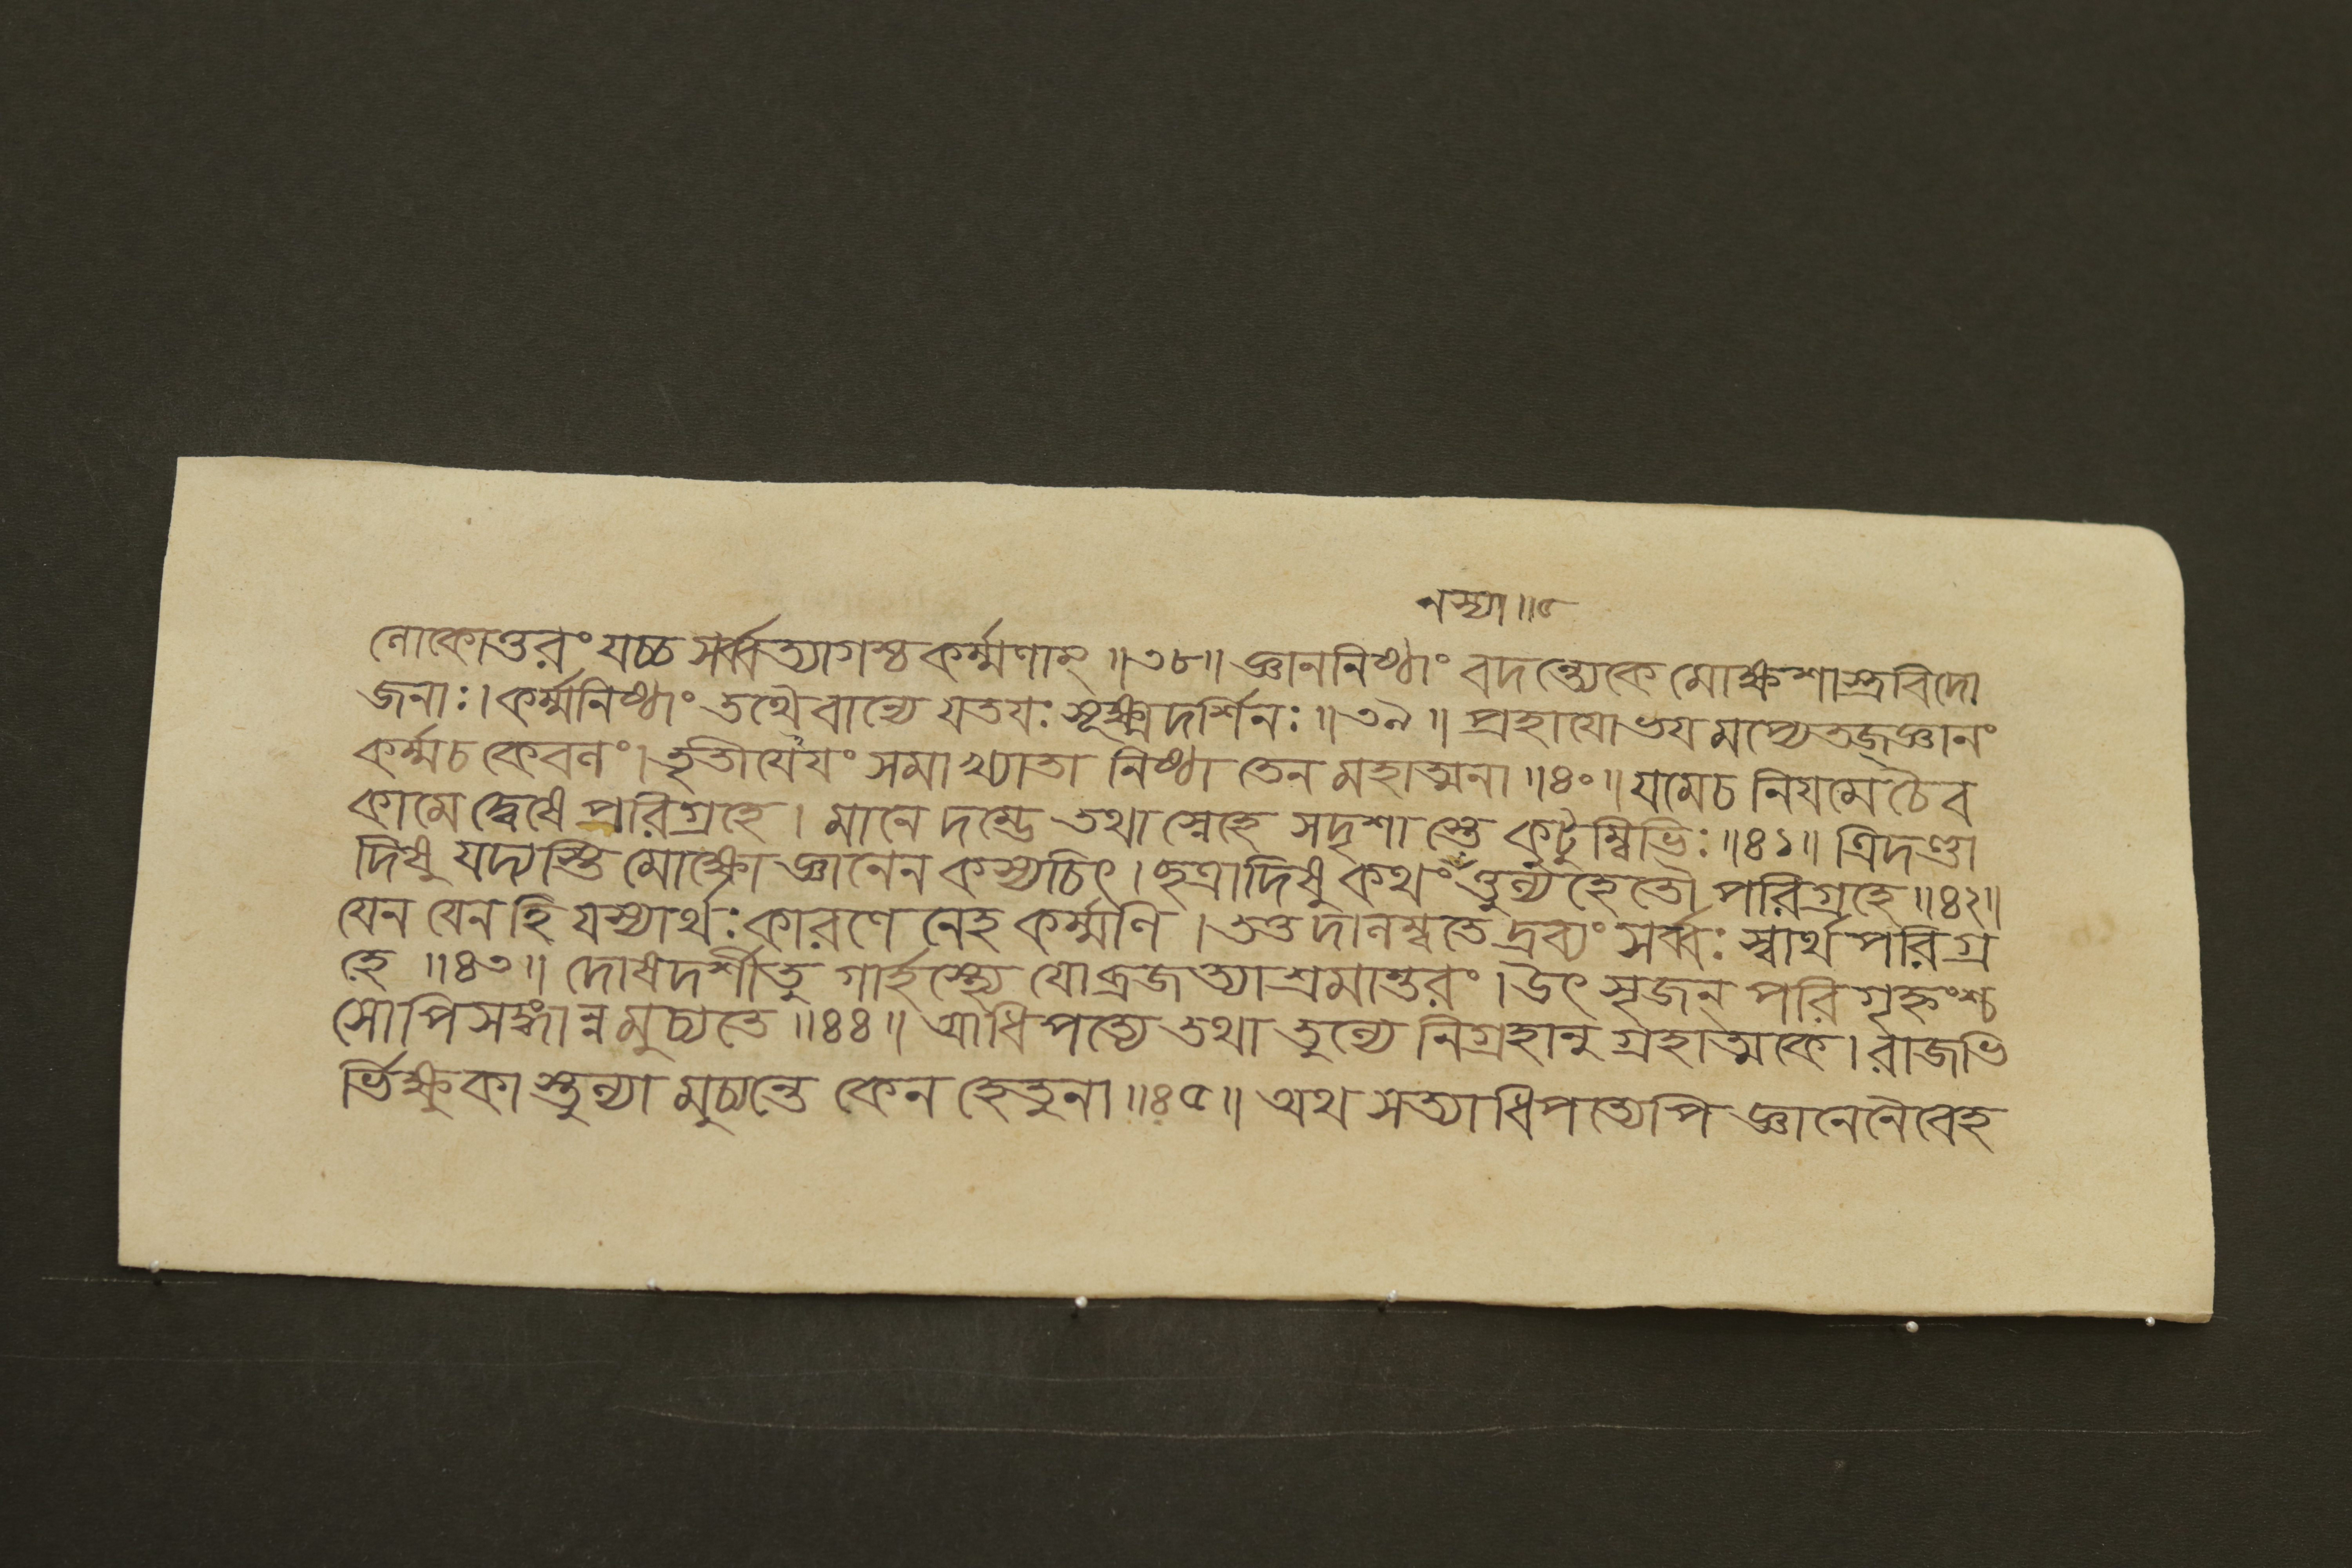 নস্যা॥৫
লোকোত্তরং যচ্চ সর্ব্বত্যাগশ্চ কর্ম্মণাম্ ॥৩৮॥ জ্ঞাননিষ্ঠাং বদন্ত্যেকে মোক্ষশাস্ত্রবিদো
জনাঃ। কর্ম্মনিষ্ঠাং তথৈবান্যে যতযঃ সূক্ষ্মদর্শিনঃ ॥৩৯॥ প্রহাযোভযমপ্যেতজ্জ্ঞানং
কর্ম্মচ কেবলং। তৃতীযেযং সমাখ্যাতা নিষ্ঠা তেন মহাত্মনা ॥৪০॥ যমেচ নিযমেচৈব
কামে দ্বেষে পরিগ্রহে। মানে দম্ভে তথা স্নেহে সদৃশাস্তে কুটুম্বিভিঃ ॥৪১॥ ত্রিদণ্ডা
দিষু যদ্যস্তি মোক্ষো জ্ঞানেন কস্যচিৎ। ছত্রাদিষু কথং তুল্য হেতৌ পরিগ্রহে ॥৪২॥
যেন যেন হি যস্যার্থঃ কারণেনেহ কর্ম্মণি। তত্তদালম্বতে দ্রব্যং সর্ব্বঃ স্বার্থপরিগ্র
হে ॥৪৩॥ দোষদর্শীতু গার্হস্থ্যে যোব্রজত্যাশ্রমান্তরং। উৎসৃজন্ পরিগৃহ্নংশ্চ
সোপি সঙ্গান্ন মুচ্যতে ॥৪৪॥ আধিপত্যে তথা তুল্যে নিগ্রহানুগ্রহাত্মকে। রাজভি
র্ভিক্ষুকাস্তুল্যা মুচ্যন্তে কেন হেতুনা ॥৪৫॥ অথ সত্যাধিপত্যেপি জ্ঞানেনৈবেহ